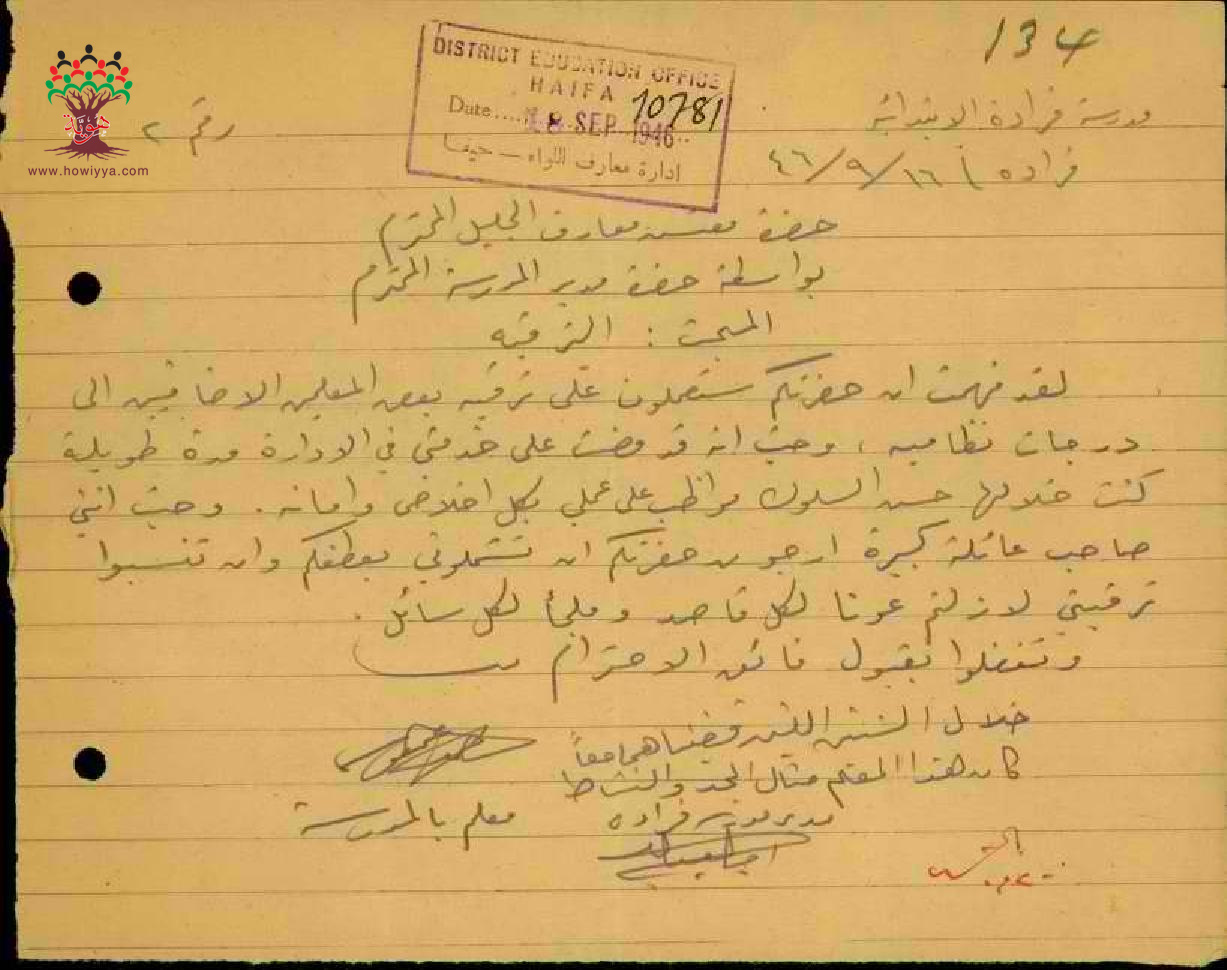 134
DISTRICT EDUCATION OFFICE
HAIFA
10781
Date..... 18 SEP 1946
ادارة معارف اللواء – حيفا
هوية
www.howiyya.com
مدرسة فرادة الابتدائية
رقم ٢
فراده ١٦/٩/٤٦
حضرة مفتش معارف الجليل المحترم
بواسطة حضرة مدير المدرسة المحترم
المبحث : الترقيه
لقد فهمت ان حضرتكم ستعملون على ترقيه بعض المعلمين الاضافيين الى
درجات نظاميه ، وحيث انه قد مضت على خدمتي في الادارة مدة طويلة
كنت خلالها حسن السلوك مواظب على عملي بكل اخلاص وامانه . وحيث انني
صاحب عائلة كبيرة ارجو من حضرتكم ان تشملوني بعطفكم وان تنسبوا
ترقيتي لازلتم عونا لكل قاصد وملجأ لكل سائل .
وتفضلوا بقبول فائق الاحترام
خلال السنتين اللتين قضيناهما معاً
كان هذا المعلم مثال الجد والنشاط
مدير مدرسة فراده
معلم بالمدرسة